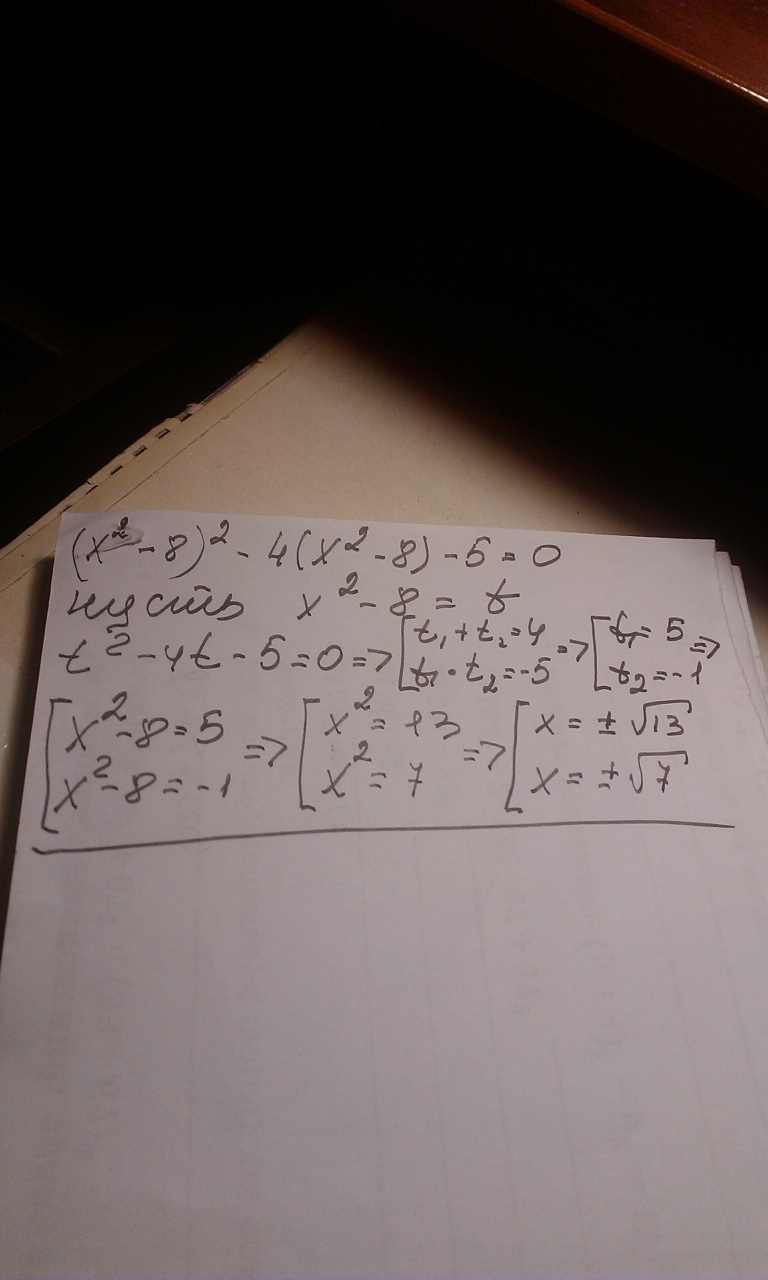 (x² - 8)² - 4(x² - 8) - 5 = 0
пусть x² - 8 = t
t² - 4t - 5 = 0 => [ t₁ + t₂ = 4 => [ t₁ = 5 =>
t₁ · t₂ = -5 t₂ = -1
[ x² - 8 = 5 => [ x² = 13 => [ x = ± √13
x² - 8 = -1 x² = 7 x = ± √7